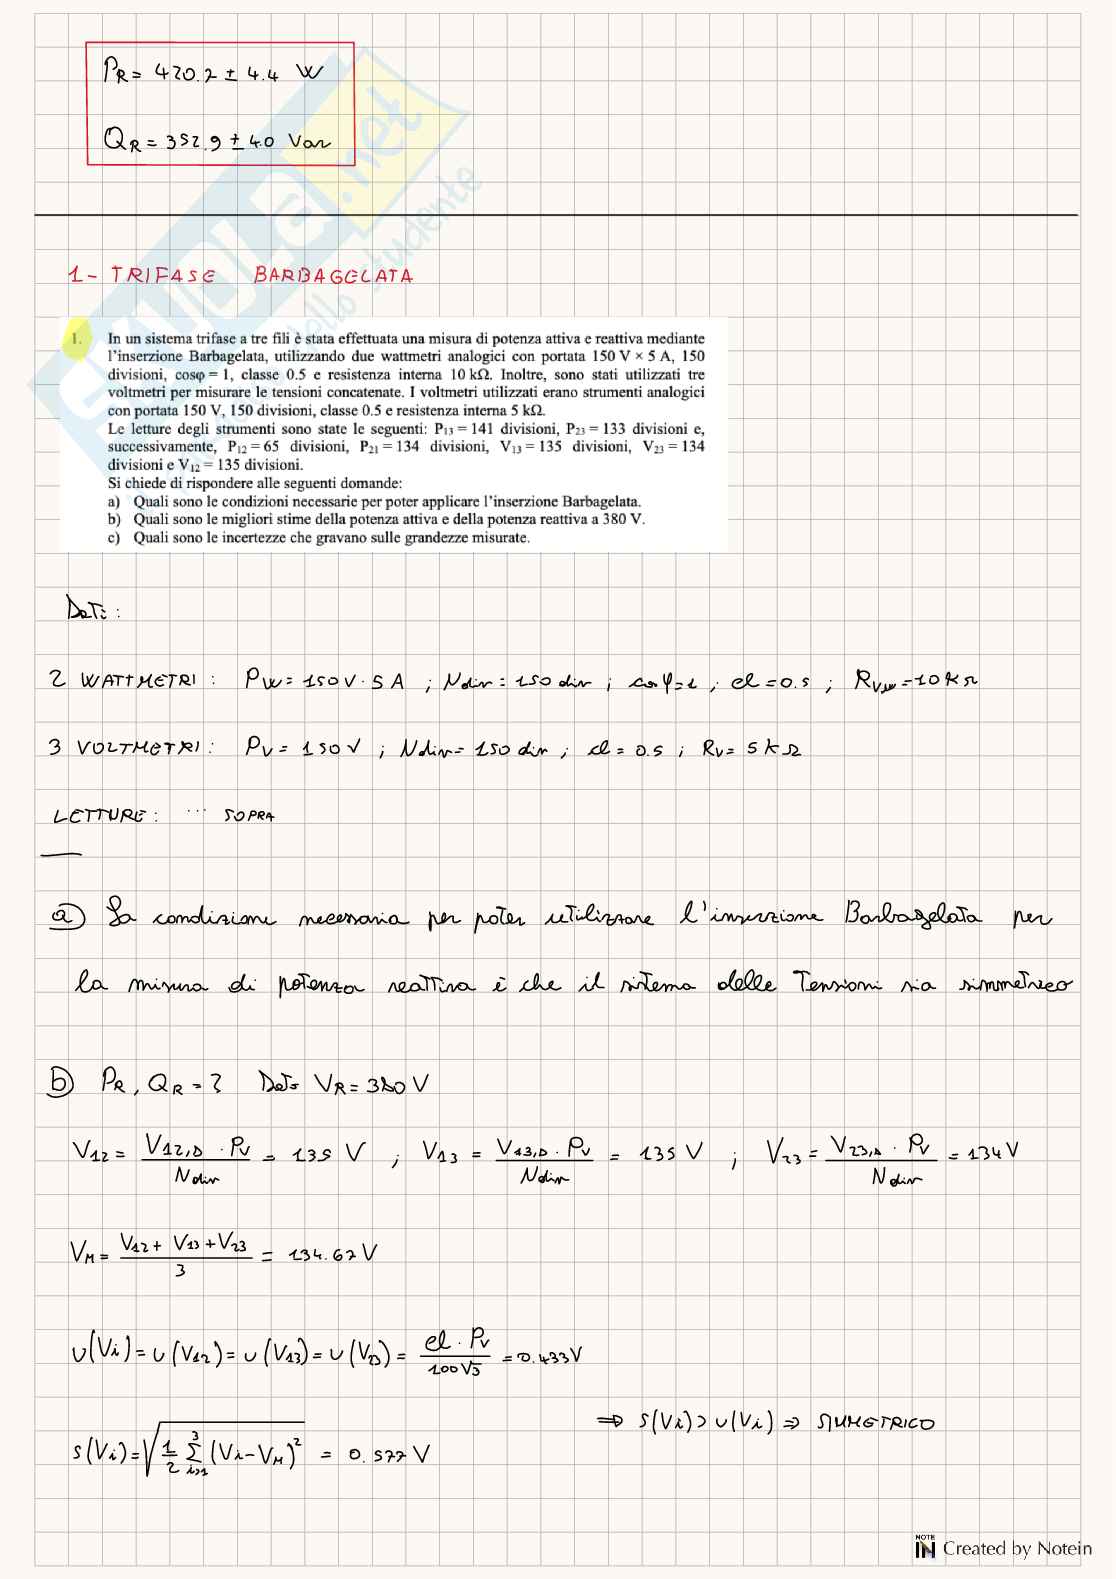 P_R = 420.2 ± 4.4 W
Q_R = 352.9 ± 4.0 Var
1- TRIFASE BARBAGELATA
1. In un sistema trifase a tre fili è stata effettuata una misura di potenza attiva e reattiva mediante
l'inserzione Barbagelata, utilizzando due wattmetri analogici con portata 150 V × 5 A, 150
divisioni, cosφ = 1, classe 0.5 e resistenza interna 10 kΩ. Inoltre, sono stati utilizzati tre
voltmetri per misurare le tensioni concatenate. I voltmetri utilizzati erano strumenti analogici
con portata 150 V, 150 divisioni, classe 0.5 e resistenza interna 5 kΩ.
Le letture degli strumenti sono state le seguenti: P13 = 141 divisioni, P23 = 133 divisioni e,
successivamente, P12 = 65 divisioni, P21 = 134 divisioni, V13 = 135 divisioni, V23 = 134
divisioni e V12 = 135 divisioni.
Si chiede di rispondere alle seguenti domande:
a) Quali sono le condizioni necessarie per poter applicare l'inserzione Barbagelata.
b) Quali sono le migliori stime della potenza attiva e della potenza reattiva a 380 V.
c) Quali sono le incertezze che gravano sulle grandezze misurate.
Dati :
2 WATTMETRI : Pw = 150V · 5 A ; Ndiv = 150 div ; cos φ = 1 ; cl = 0.5 ; R_Vw = 10 KΩ
3 VOLTMETRI : Pv = 150V ; Ndiv = 150 div ; cl = 0.5 ; Rv = 5 k Ω
LETTURE : ... SOPRA
a) La condizione necessaria per poter utilizzare l'inserzione Barbagelata per
la misura di potenza reattiva è che il sistema delle Tensioni sia simmetrico
b) P_R , Q_R = ? Dato V_R = 380 V
V12 = V12,D · Pv / Ndiv = 135 V ; V13 = V13,D · Pv / Ndiv = 135 V ; V23 = V23,D · Pv / Ndiv = 134 V
V_M = (V12 + V13 + V23) / 3 = 134.67 V
u(Vi) = u(V12) = u(V13) = u(V23) = cl · Pv / 100√3 = 0.433V
⇒ s(Vi) > u(Vi) ⇒ SIMMETRICO
s(Vi) = √(1/2 Σ_{i=1}^{3} (Vi - V_M)²) = 0.577 V
NOTE IN Created by Notein